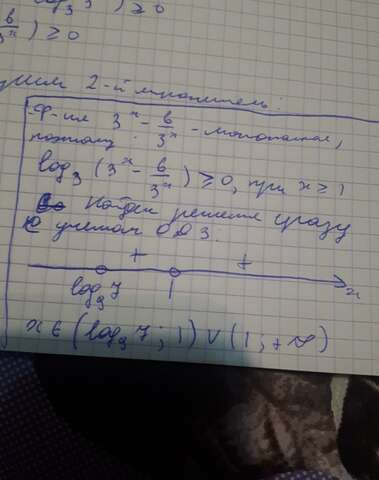 log₃ 3 ) ≥ 0
6/3ˣ ) ≥ 0
2-й множитель:
Ф-ия 3ˣ - 6/3ˣ - монотонная,
поэтому
log₃ (3ˣ - 6/3ˣ) ≥ 0, при x ≥ 1
Найдем решение сразу
С учетом ОДЗ:
+ +
log₉ 7 1 x
x ∈ (log₉ 7 ; 1) ∪ (1 ; +∞)